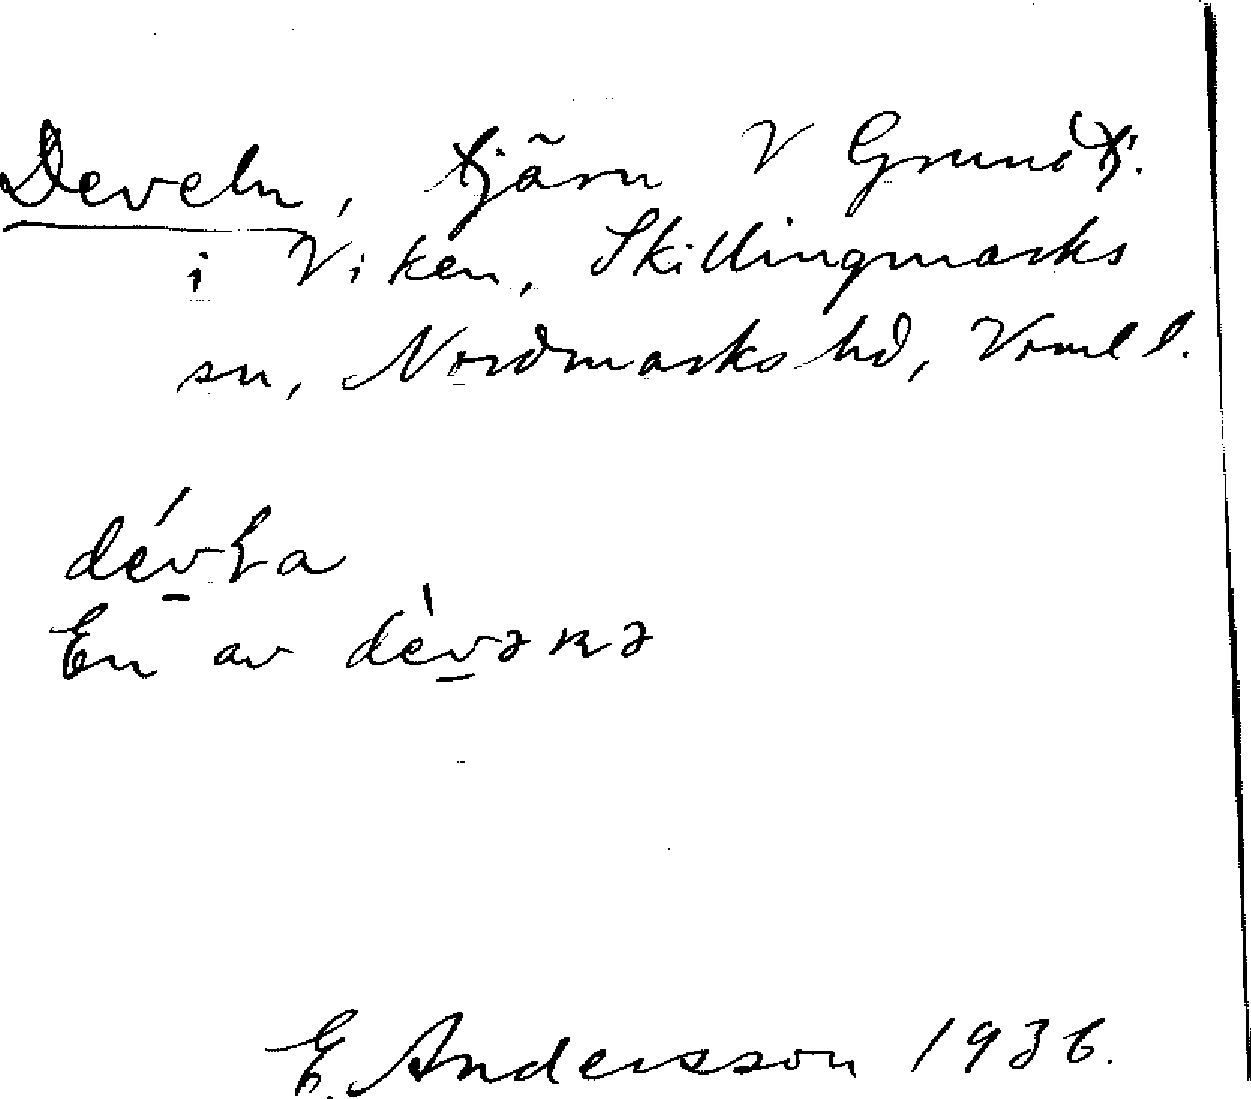 Develn, tjärn V Grundtj.
i Viken, Skillingmarks
sn, Nordmarks hd, Vrml l.
dévⱡa
En av dèvəꞃə
E. Andersson 1936.